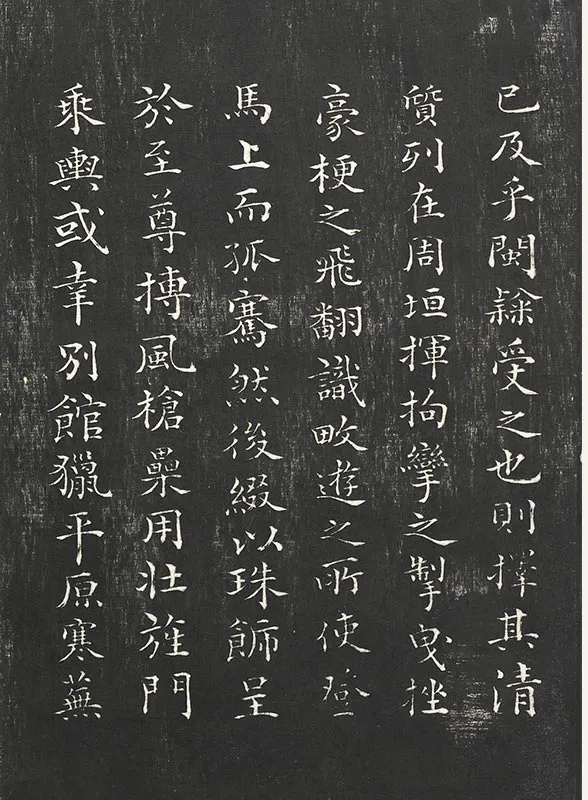 已及乎閩隸受之也則擇其清
質列在周垣揮拘攣之掣曳挫
豪梗之飛翻識畋遊之所使登
馬上而孤騫然後綴以珠飾呈
於至尊摶風槍纍用壯旌門
乘輿或幸別館獵平原寒蕪